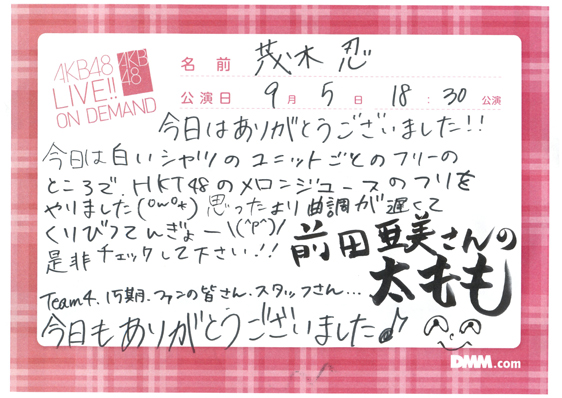 AKB48
LIVE!!
ON DEMAND
AKB
48
名前 茂木 忍
公演日 9月 5日 18:30公演
今日はありがとうございました!!
今日は白いシャツのユニットごとのフリーの
ところで、HKT48のメロンジュースのフリを
やりました(º﹃º*)思ったより曲調が遅くて
くりびつてんぎょー\(^o^)/
是非チェックして下さい!!
前田亜美さんの
太もも
Team4、15期、ファンの皆さん、スタッフさん...
今日もありがとうございました♪
DMM.com